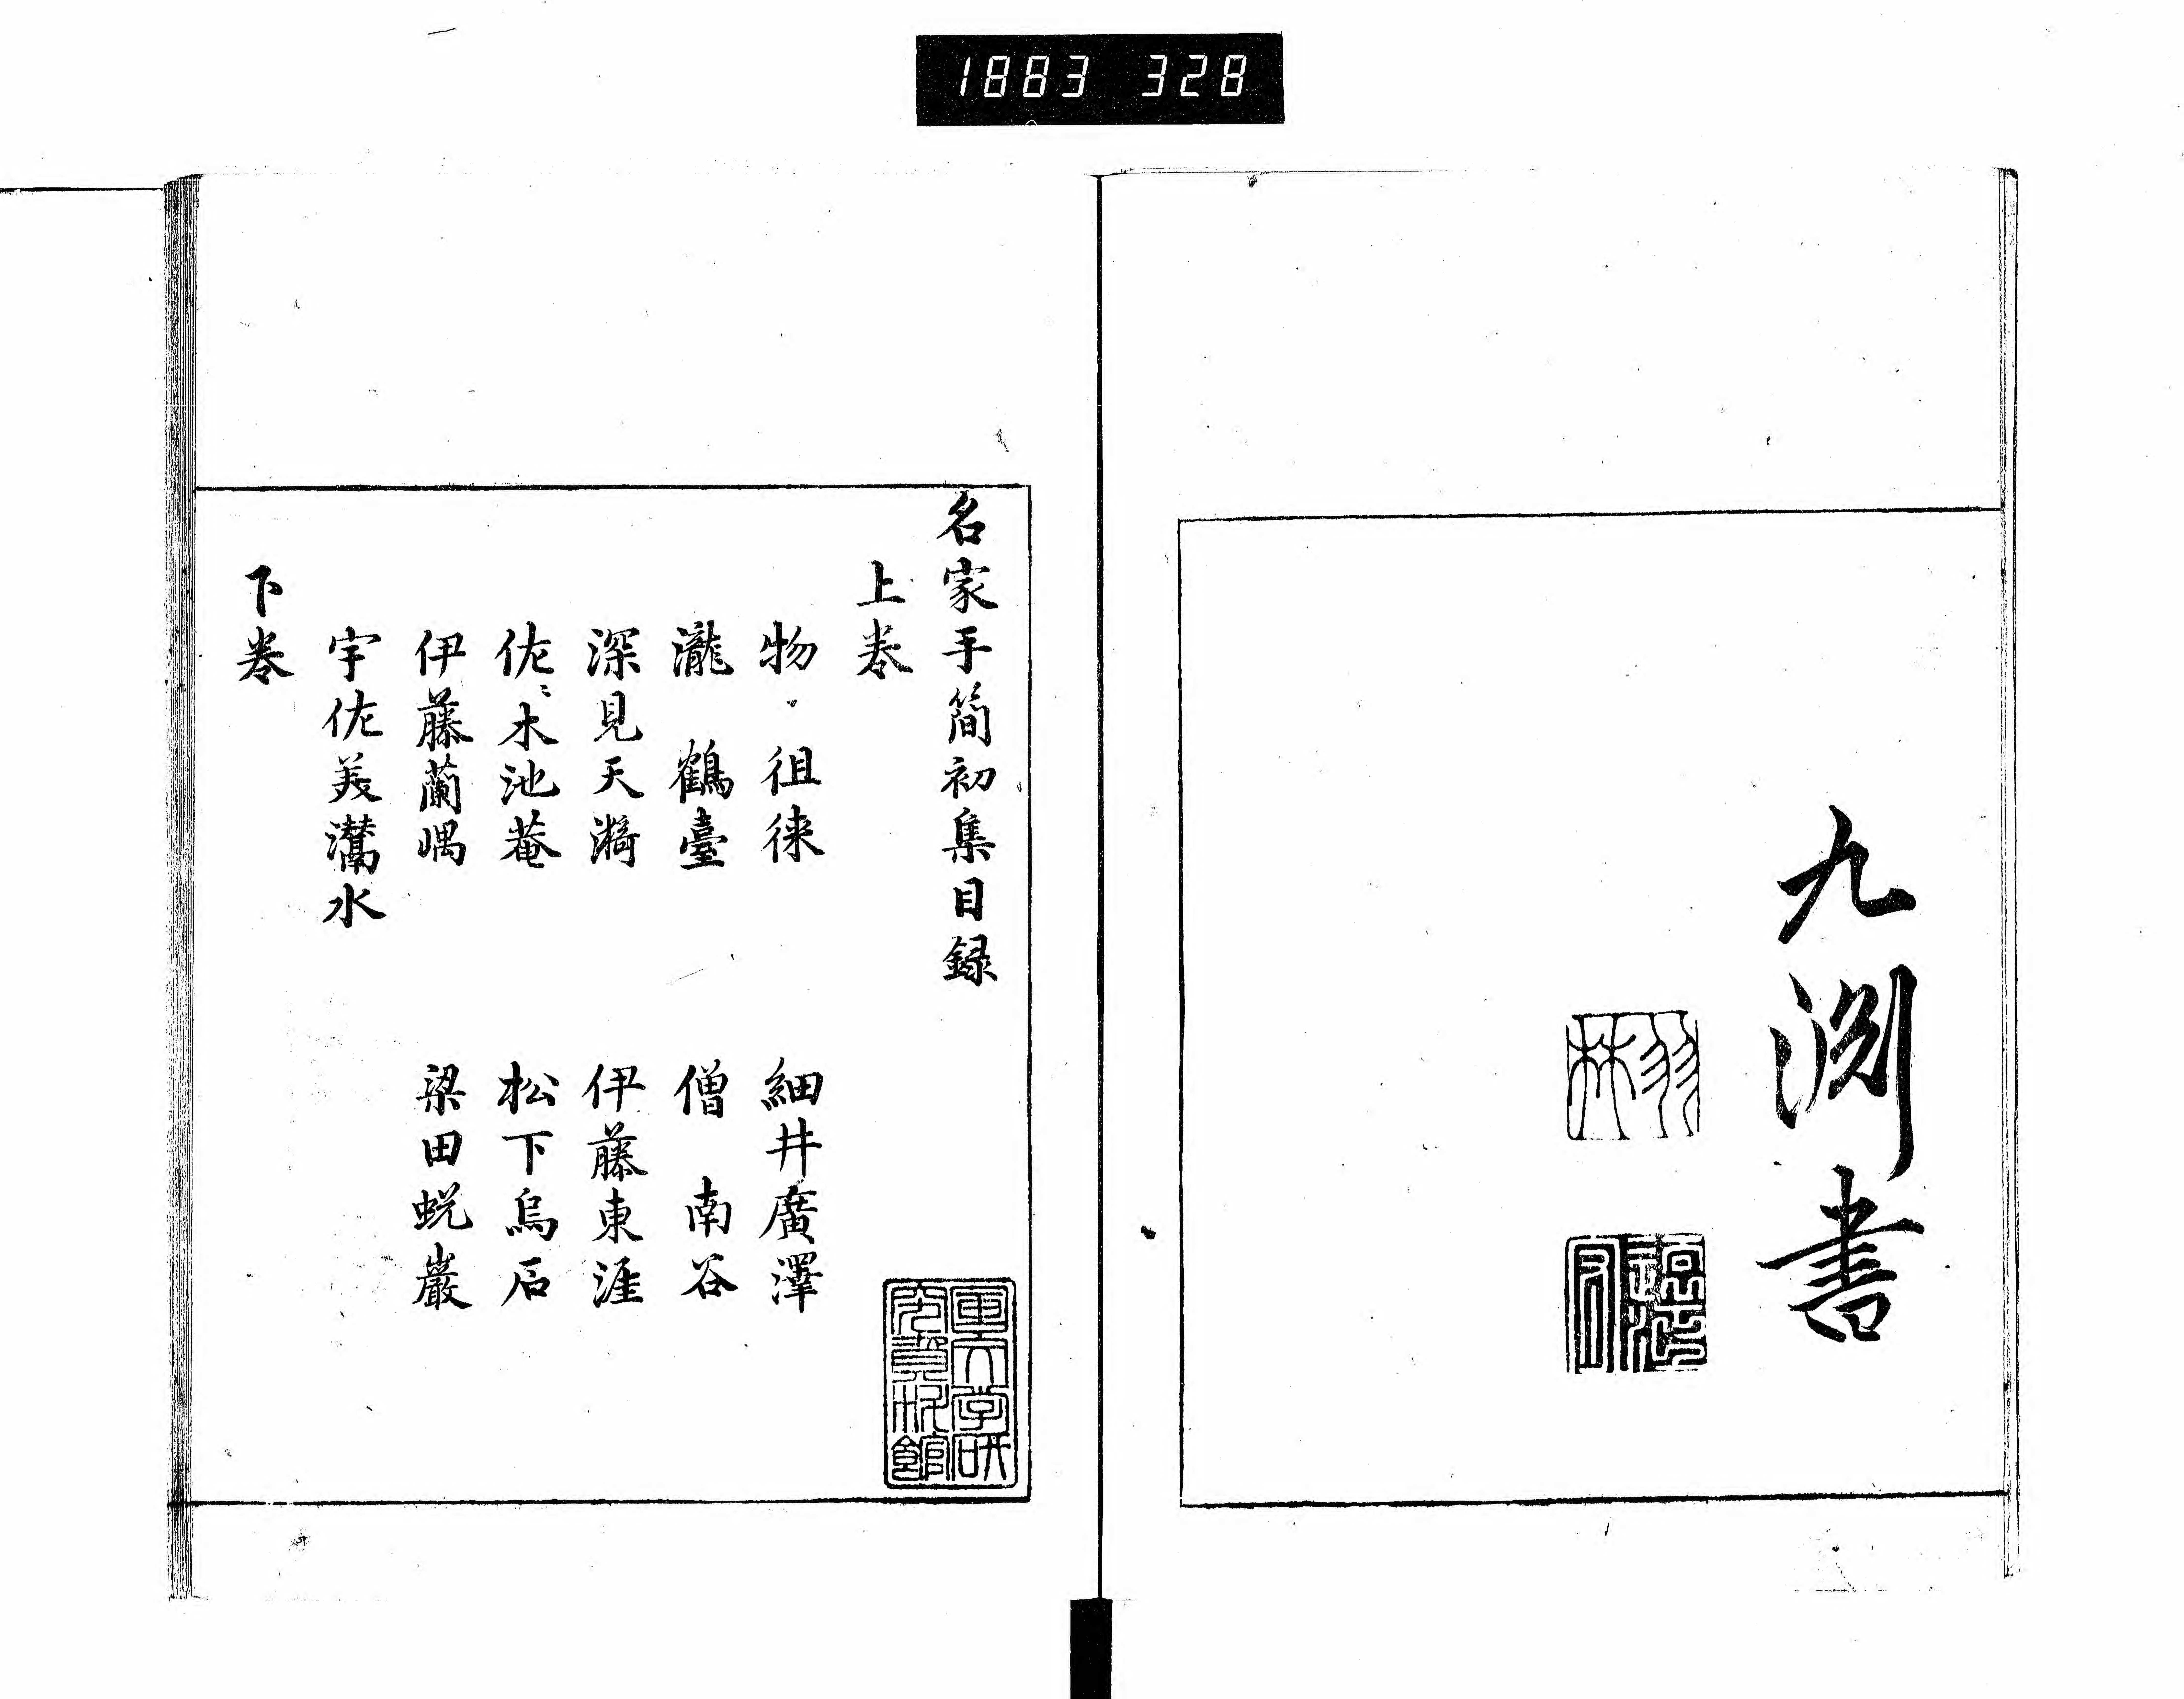 1883 328
九淵書
羽林
名家手簡初集目録
上巻
物 徂徠 細井廣澤
瀧 鶴臺 僧 南谷
深見天漪 伊藤東涯
佐々木池菴 松下烏石
伊藤蘭嵎 梁田蛻巖
宇佐美灊水
下巻
国文学研
究資料館